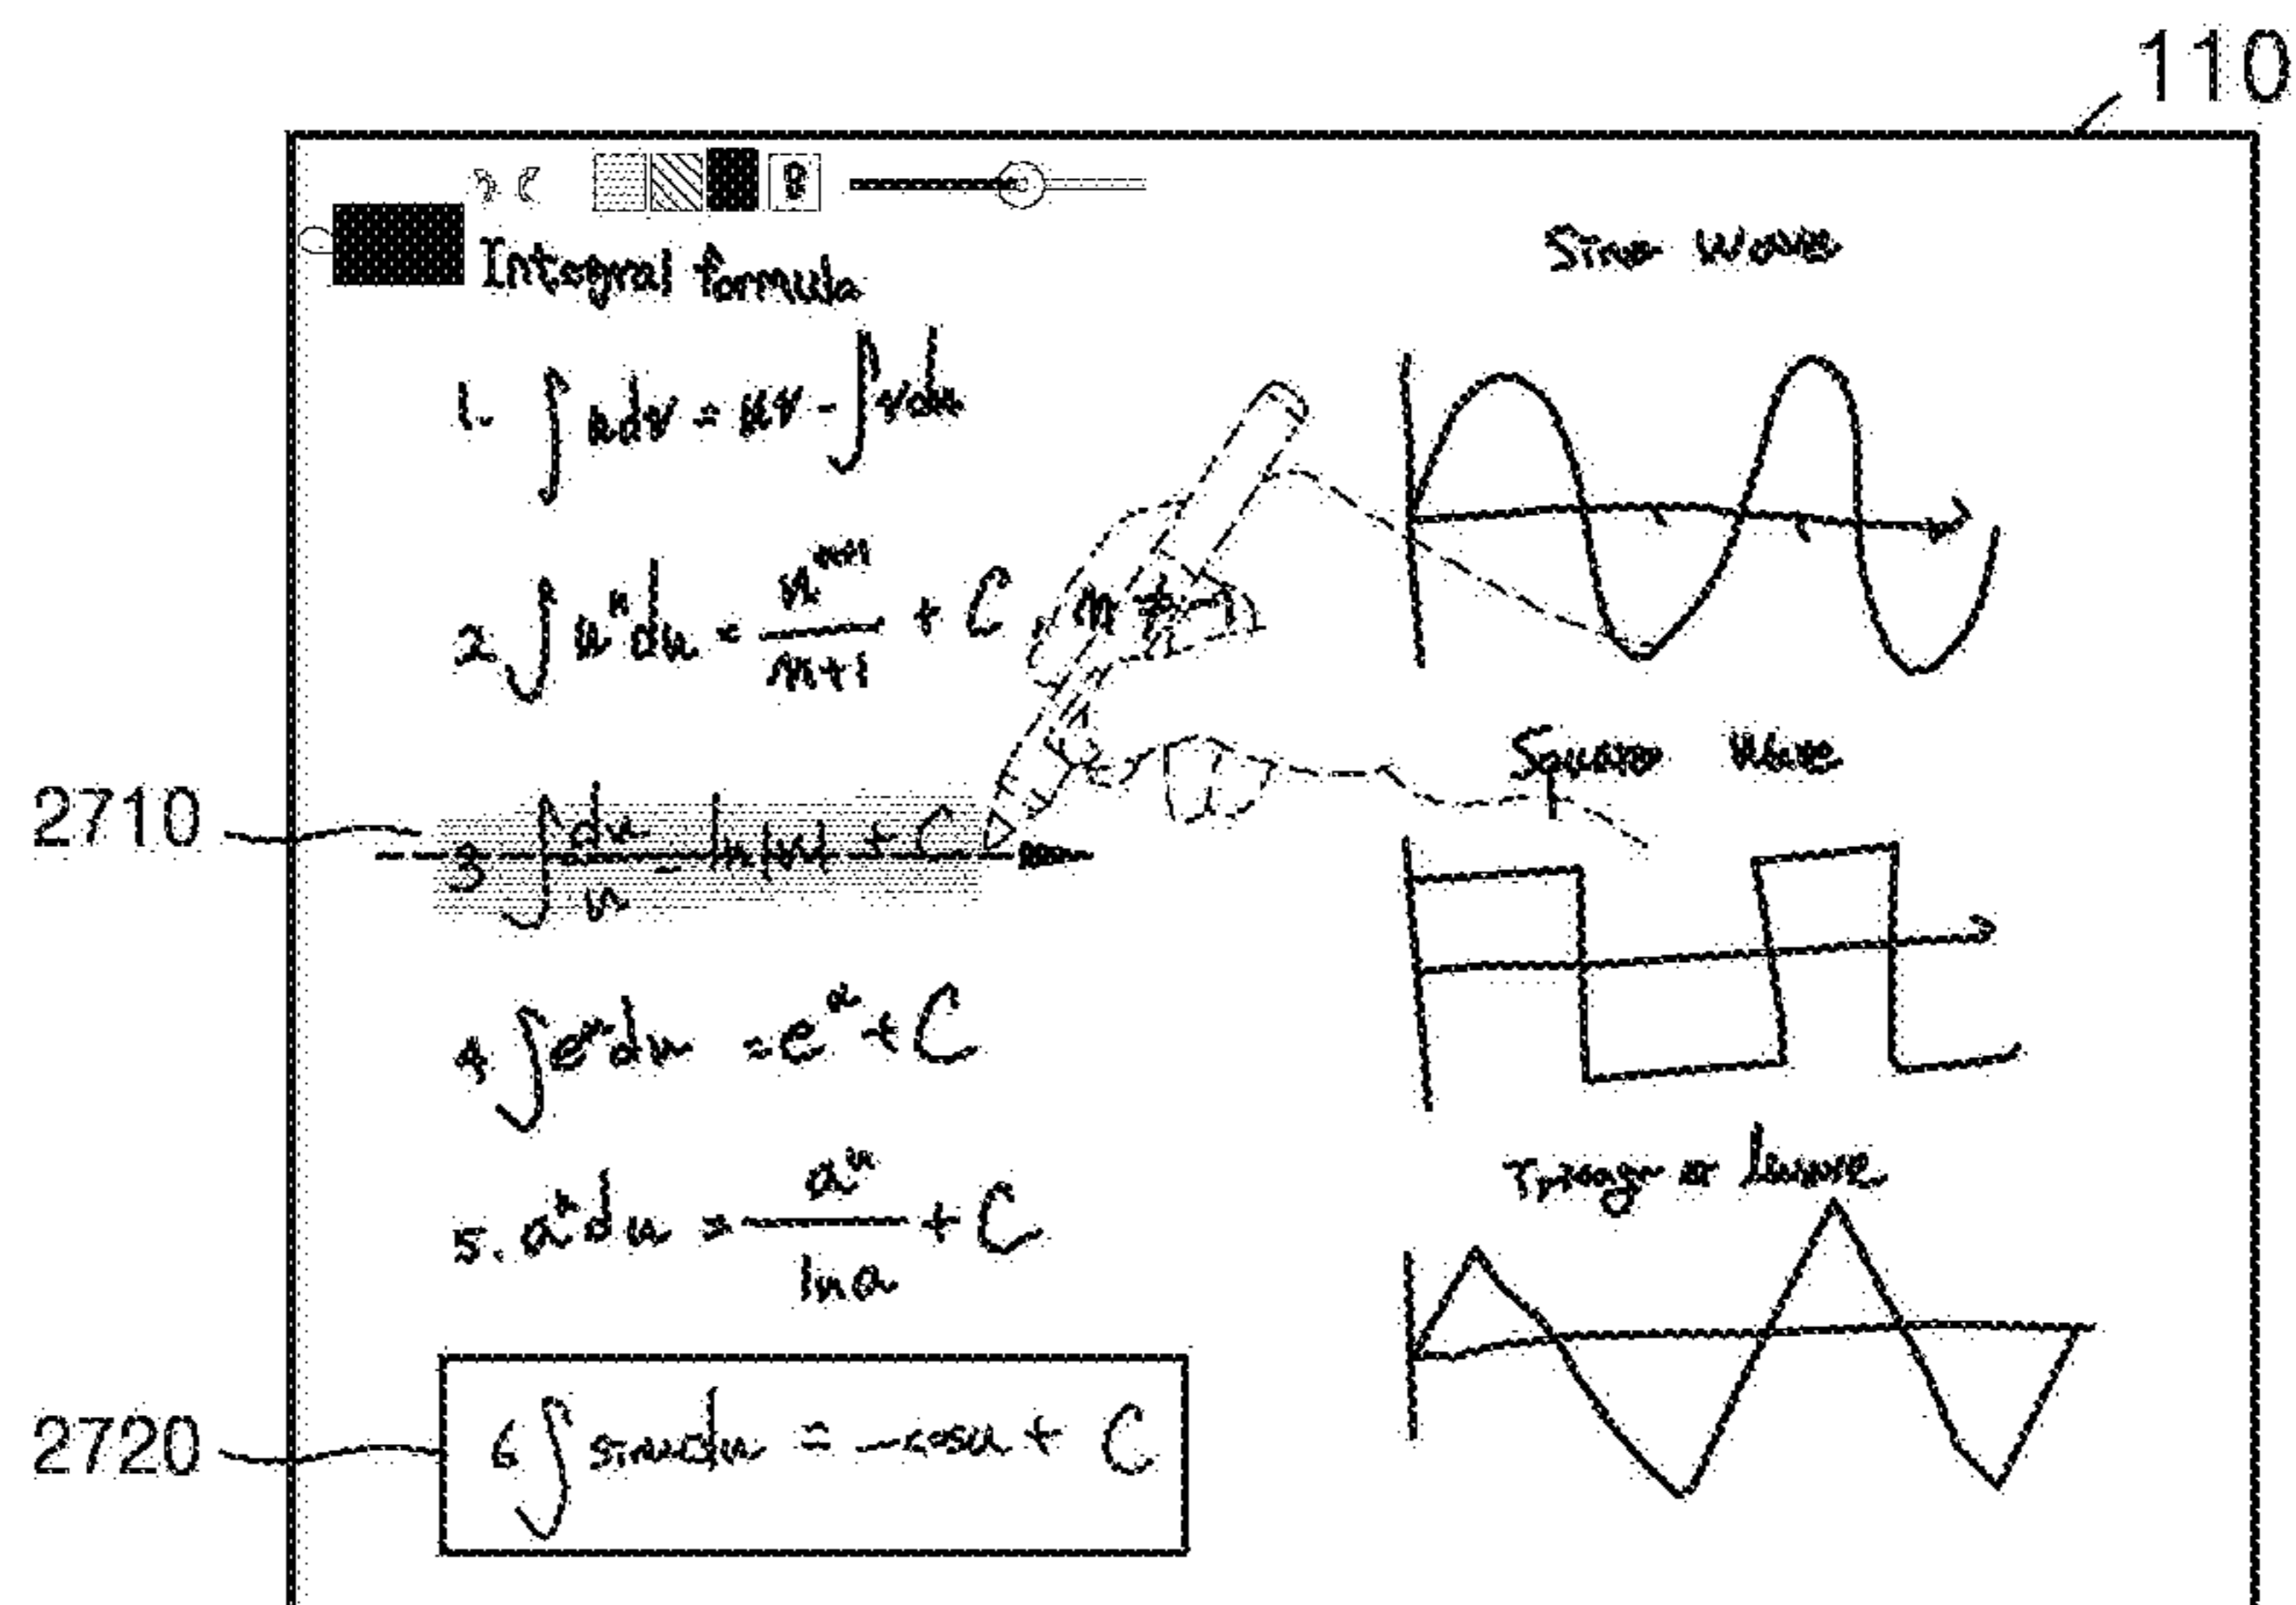 110
Integral formula
1. ∫udv = uv - ∫vdu
2. ∫uⁿdu = uⁿ⁺¹/n+1 + C, n ≠
2710
3 ∫du/u = ln|u| + C
4. ∫eᵘdu = eᵘ + C
5. aᵘdu = aᵘ/ln a + C
2720
6 ∫sinudu = -cosu + C
Sine Wave
Square Wave